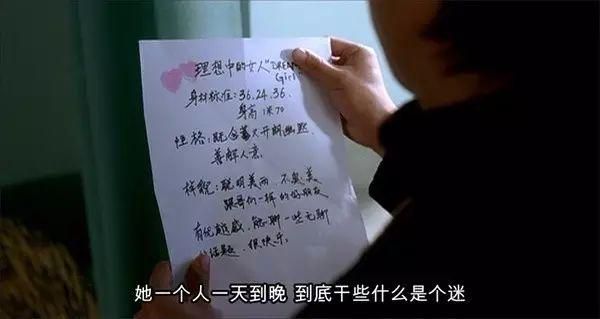 理想中的女人"DREAM
Girl"
身材标准:36.24.36.
身高 1米70
性格:既含蓄又开朗幽默.
善解人意.
样貌:聪明美丽,不臭美.
跟哥们一样的好朋友
有优越感,能聊一些无聊
话题,很快乐.
她一个人一天到晚 到底干些什么是个迷